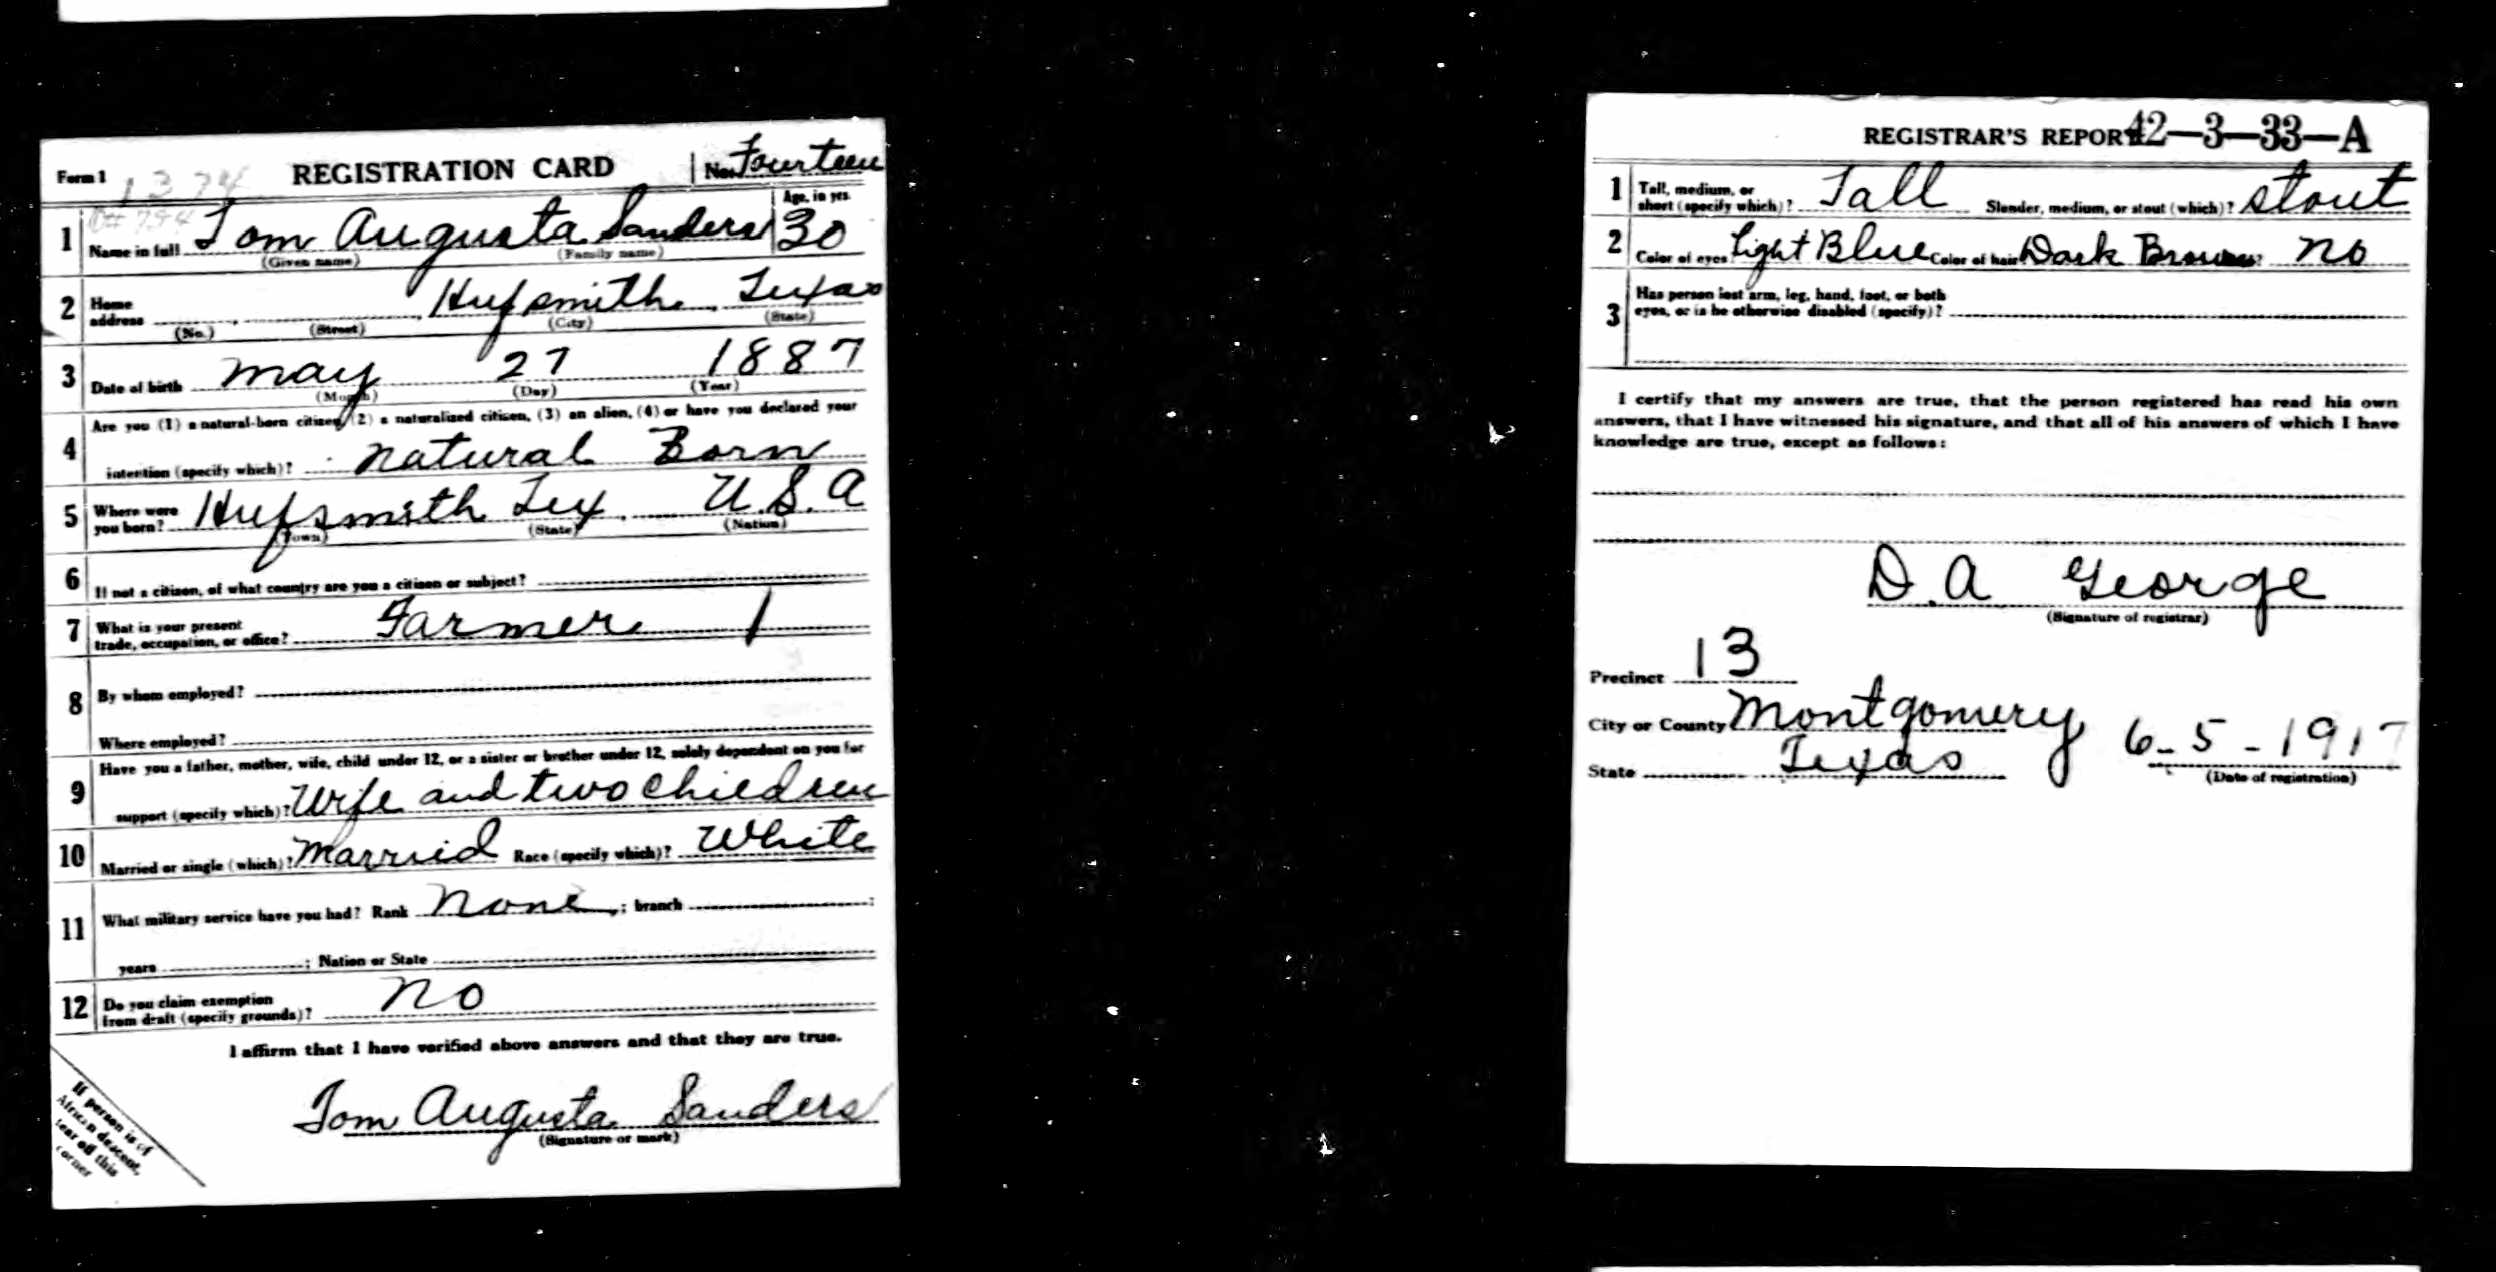 Form 1 1374 REGISTRATION CARD No. Fourteen
Age, in yrs.
1 Name in full Tom Augusta Sanders 30
(Given name) (Family name)
2 Home address Hufsmith, Texas
(No.) (Street) (City) (State)
3 Date of birth May 27 1887
(Month) (Day) (Year)
4 Are you (1) a natural-born citizen, (2) a naturalized citizen, (3) an alien, (4) or have you declared your
intention (specify which)? Natural Born
5 Where were you born? Hufsmith Tex. U.S.A
(Town) (State) (Nation)
6 If not a citizen, of what country are you a citizen or subject?
7 What is your present trade, occupation, or office? Farmer 1
8 By whom employed?
Where employed?
9 Have you a father, mother, wife, child under 12, or a sister or brother under 12, solely dependent on you for
support (specify which)? Wife and two children
10 Married or single (which)? Married Race (specify which)? White
11 What military service have you had? Rank None; branch ;
years ; Nation or State
12 Do you claim exemption from draft (specify grounds)? No
I affirm that I have verified above answers and that they are true.
Tom Augusta Sanders
(Signature or mark)
If person is of
African descent,
tear off this
corner
REGISTRAR'S REPORT 42-3-33-A
1 Tall, medium, or short (specify which)? Tall Slender, medium, or stout (which)? Stout
2 Color of eyes Light Blue Color of hair Dark Brown ? No
3 Has person lost arm, leg, hand, foot, or both
eyes, or is he otherwise disabled (specify)?
I certify that my answers are true, that the person registered has read his own
answers, that I have witnessed his signature, and that all of his answers of which I have
knowledge are true, except as follows:
D. A George
(Signature of registrar)
Precinct 13
City or County Montgomery
State Texas 6-5-1917
(Date of registration)